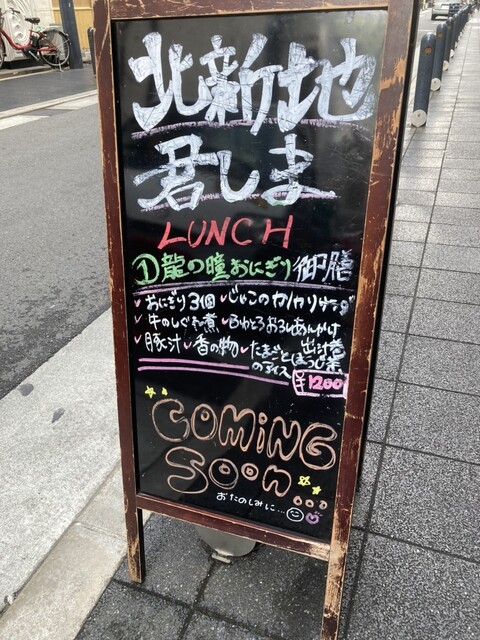 北新地
君しま
LUNCH
①龍の瞳おにぎり御膳
✓おにぎり3個 ✓じゃこのカリカリサラダ
✓牛のしぐれ煮 ✓ふわとろおろしあんかけ
出汁巻
✓豚汁 ✓香の物 ✓たまごとほうじ茶
のアイス ¥1200
COMiNG
Soon...
おたのしみに...